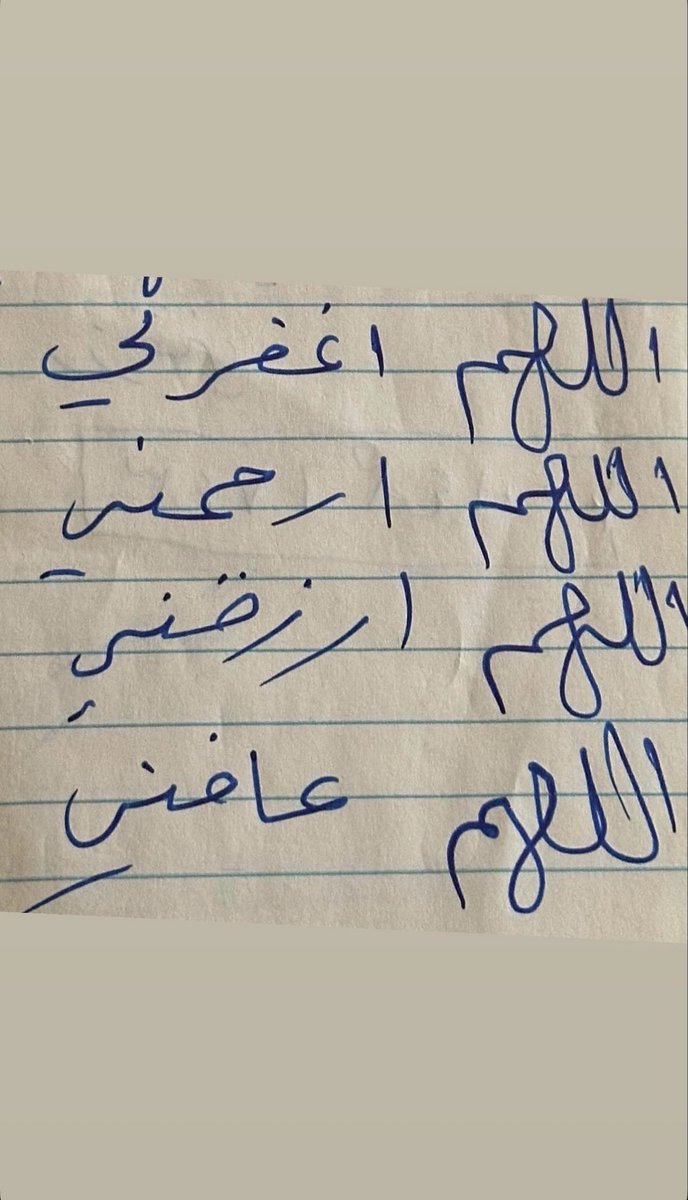 اللهم اغفرلي
اللهم ارحمني
اللهم ارزقني
اللهم عافني